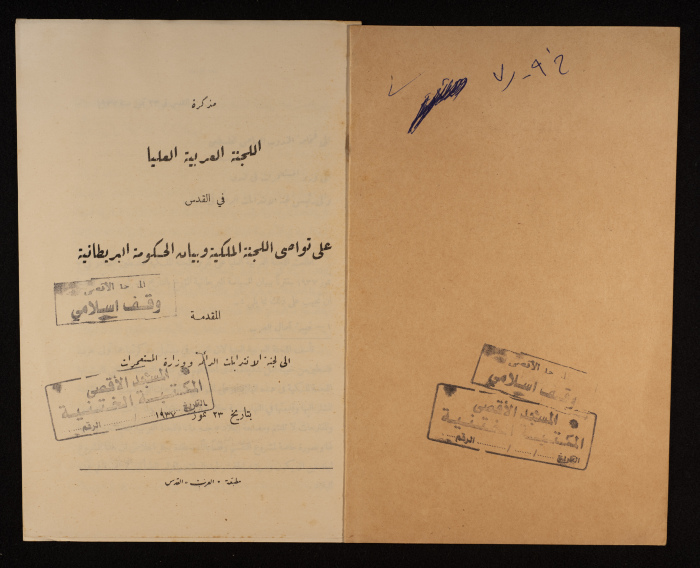 مذكرة
اللجنة العربية العليا
في القدس
على تواصي اللجنة الملكية وبيان الحكومة البريطانية
المقدمة
الى لجنة الانتدابات الدائمة ووزارة المستعمرات
بتاريخ ٢٣ تموز ١٩٣٧
مطبعة - العرب - القدس
الأقصى
وقف اسلامي
المسجد الأقصى
المكتبة الختنية
التاريخ / / الرقم
الأقصى
وقف اسلامي
المسجد الأقصى
المكتبة الختنية
التاريخ / / الرقم